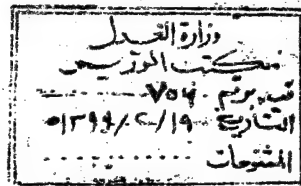 وزارة العدل
مكتب الوزير
قيد برقم ٧٥٧
التاريخ ١٣٩٩/٢/١٩هـ
المشفوعات